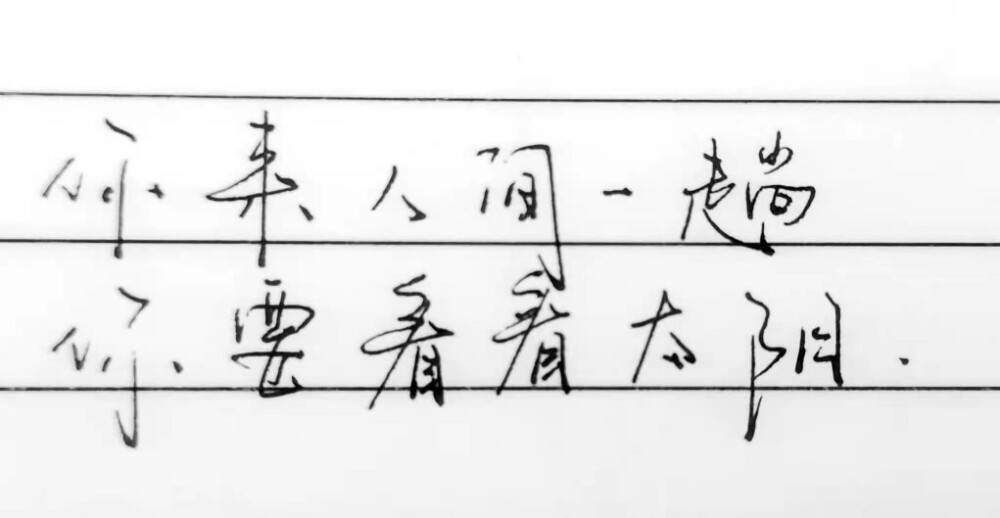 你来人间一趟
你要看看太阳.